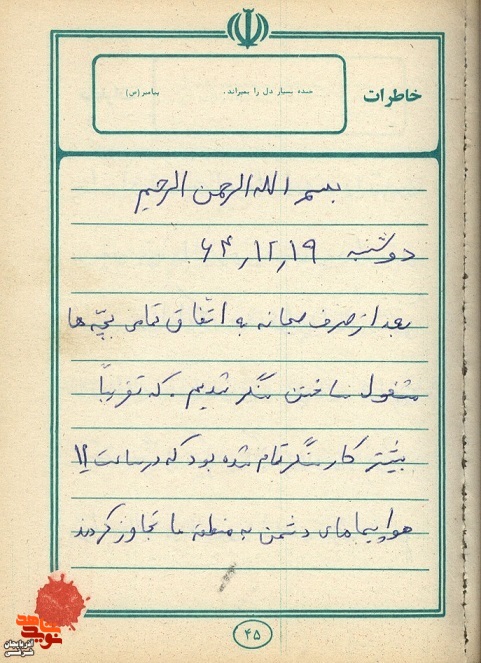 خاطرات
خنده بسیار دل را بمیراند. پیامبر(ص)
بسم الله الرحمن الرحیم
دوشنبه ۶۴٫۱۲٫۱۹
بعد از صرف صبحانه به اتفاق تمامی بچّه ها
مشغول ساختن سنگر شدیم. که تقریباً
بیشتر کار سنگر تمام شده بود که در ساعت ۱۱
هواپیماهای دشمن به منطقه ما تجاوز کردند
۴۵
نوید شاهد
آذربایجان شرقی